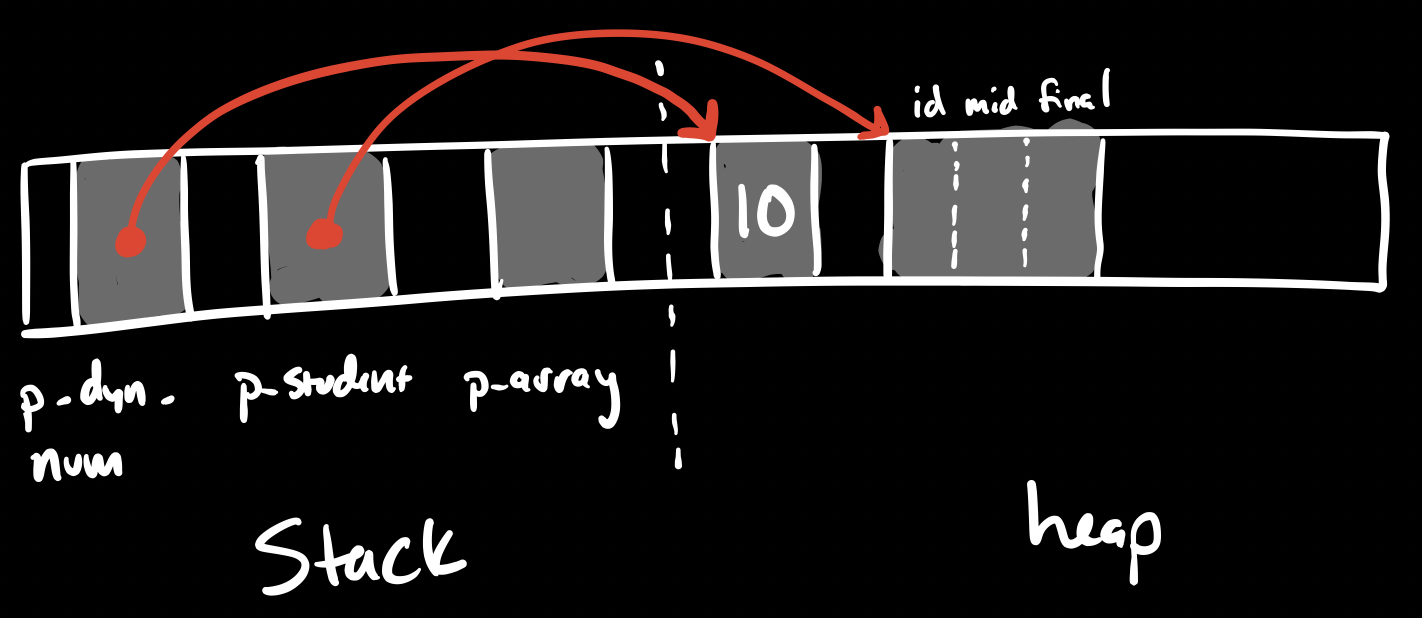 id mid final
10
p-dyn-
num
p-student
p-array
Stack
heap